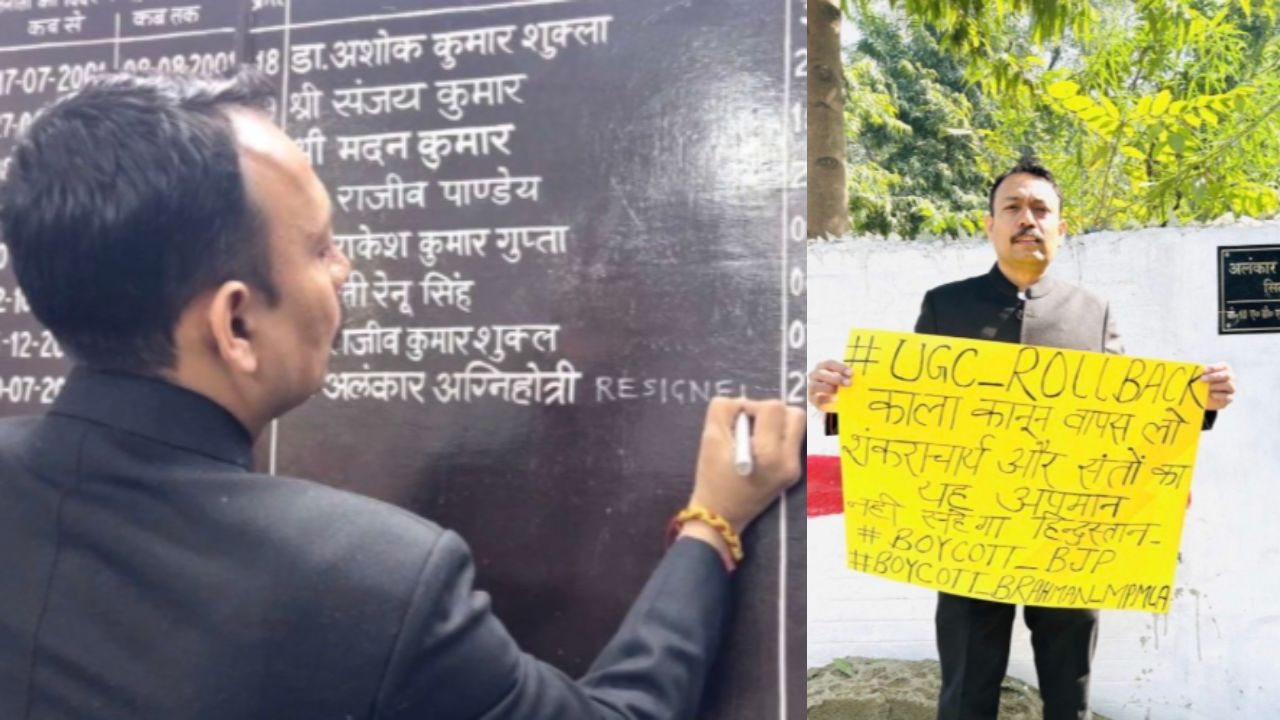 कब से
कब तक
17-07-2001 08-08-2001 18 डा.अशोक कुमार शुक्ला
श्री संजय कुमार
मदन कुमार
राजीव पाण्डेय
राकेश कुमार गुप्ता
रेनू सिंह
राजीव कुमार शुक्ल
अलंकार अग्निहोत्री RESIGNE
#UGC_ROLLBACK
काला कानून वापस लो
शंकराचार्य और संतों का
यह अपमान
नही सहेगा हिन्दुस्तान-
#BOYCOTT_BJP
#BOYCOTT_BRAHMAN_MPMLA
अलंकार